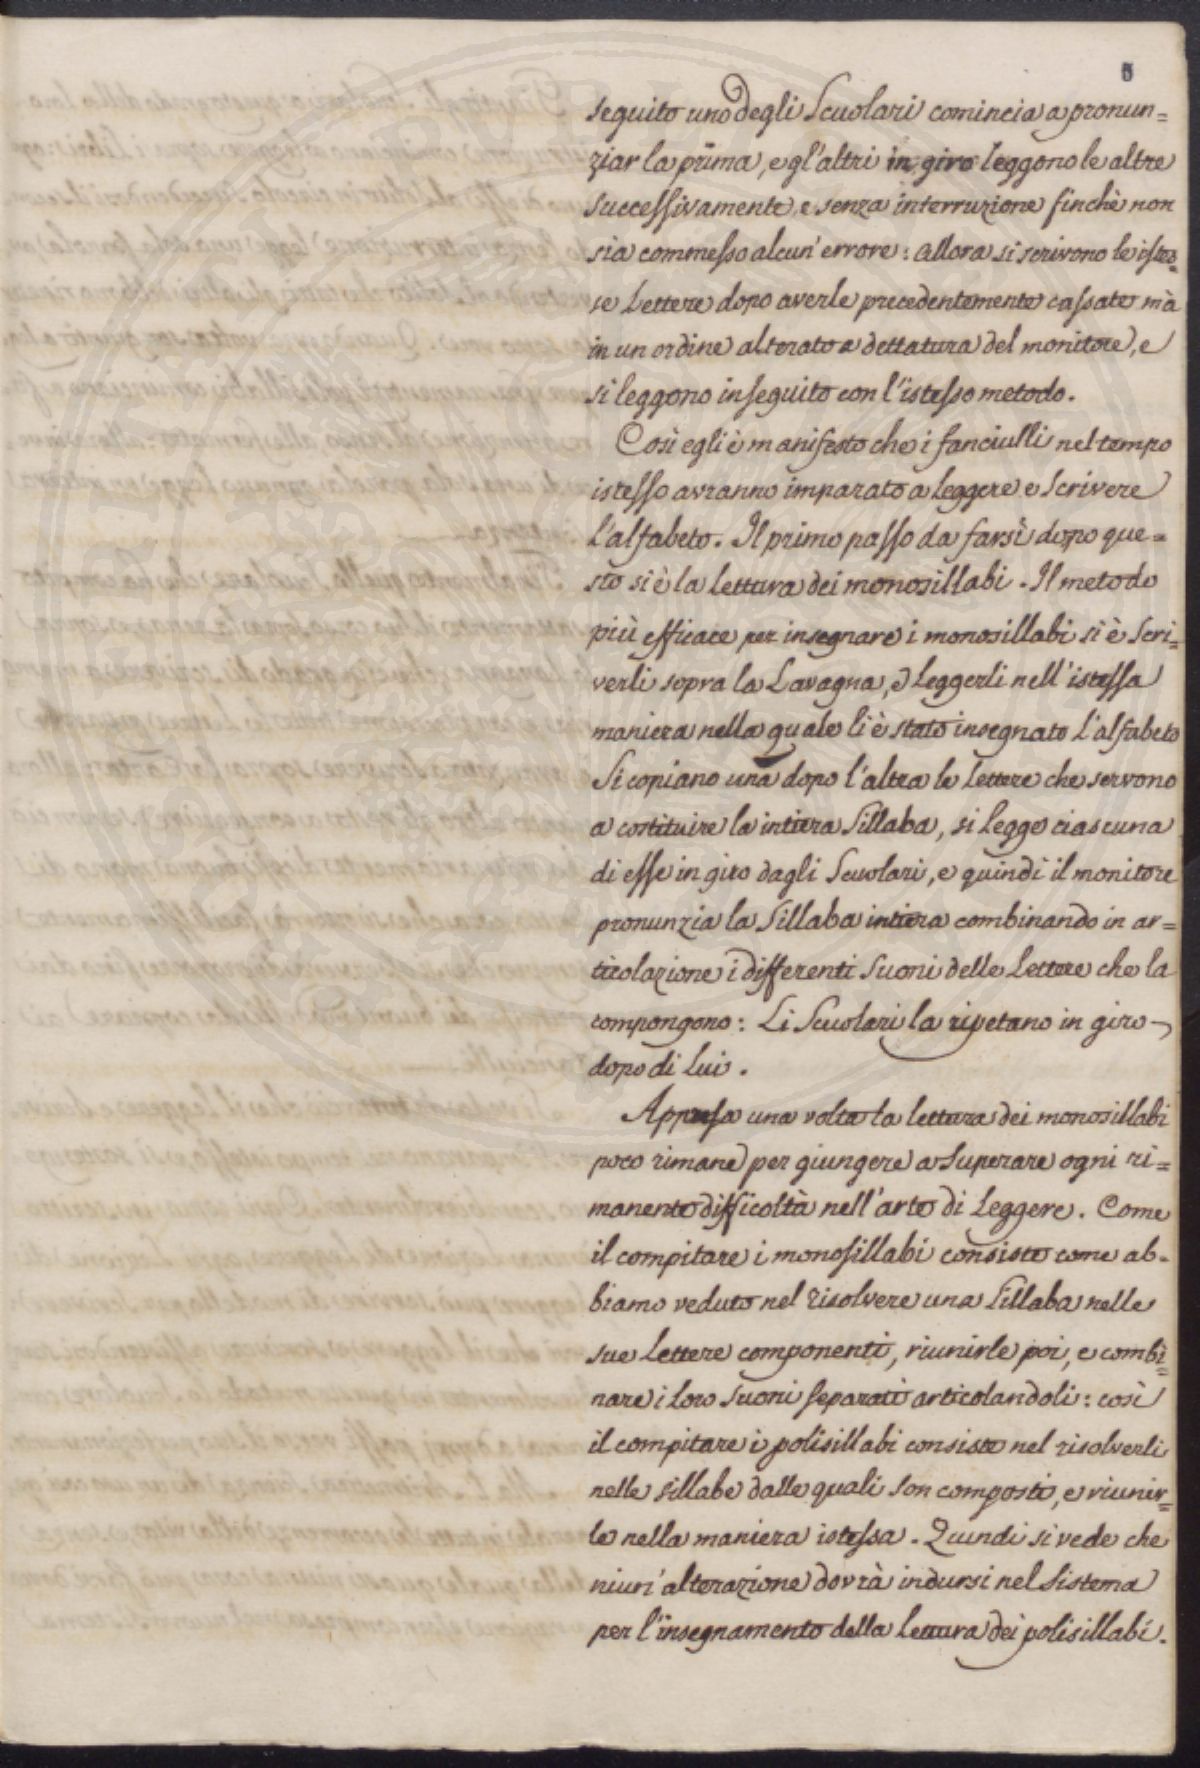 5
seguito uno degli Scuolari comincia a pronun=
ziar la prima, e gl'altri in giro leggono le altre
successivamente, e senza interruzione finchè non
sia commesso alcun' errore: allora si scrivono le istes=
se Lettere dopo averle precedentemente cassate mà
in un ordine alterato a dettatura del monitore, e
si leggono in seguito con l'istesso metodo.
Così egli è manifesto che i fanciulli nel tempo
istesso avranno imparato a leggere e Scrivere
l'alfabeto. Il primo passo da farsi dopo que=
sto si è la lettura dei monosillabi. Il metodo
più efficace per insegnare i monosillabi si è Scri=
verli sopra la Lavagna, e leggerli nell'istessa
maniera nella quale li è stato insegnato l'alfabeto
Si copiano una dopo l'altra le Lettere che servono
a costituire la intiera Sillaba, si legge ciascuna
di esse in giro dagli Scuolari, e quindi il monitore
pronunzia la Sillaba intiera combinando in ar=
ticolazione i differenti Suoni delle Lettere che la
compongono: Li Scuolari la ripetano in giro
dopo di Lui.
Appresa una volta la lettura dei monosillabi
poco rimane per giungere a Superare ogni ri=
manente difficoltà nell'arte di Leggere. Come
il compitare i monosillabi consiste come ab=
biamo veduto nel risolvere una Sillaba nelle
sue Lettere componenti, riunirle poi, e combi=
nare i Loro Suoni Separati articolandoli: così
il compitare i polisillabi consiste nel risolverli
nelle sillabe dalle quali son composti, e riunir=
le nella maniera istessa. Quindi si vede che
niun' alterazione dovrà indursi nel Sistema
per l'insegnamento della Lettura dei polisillabi.